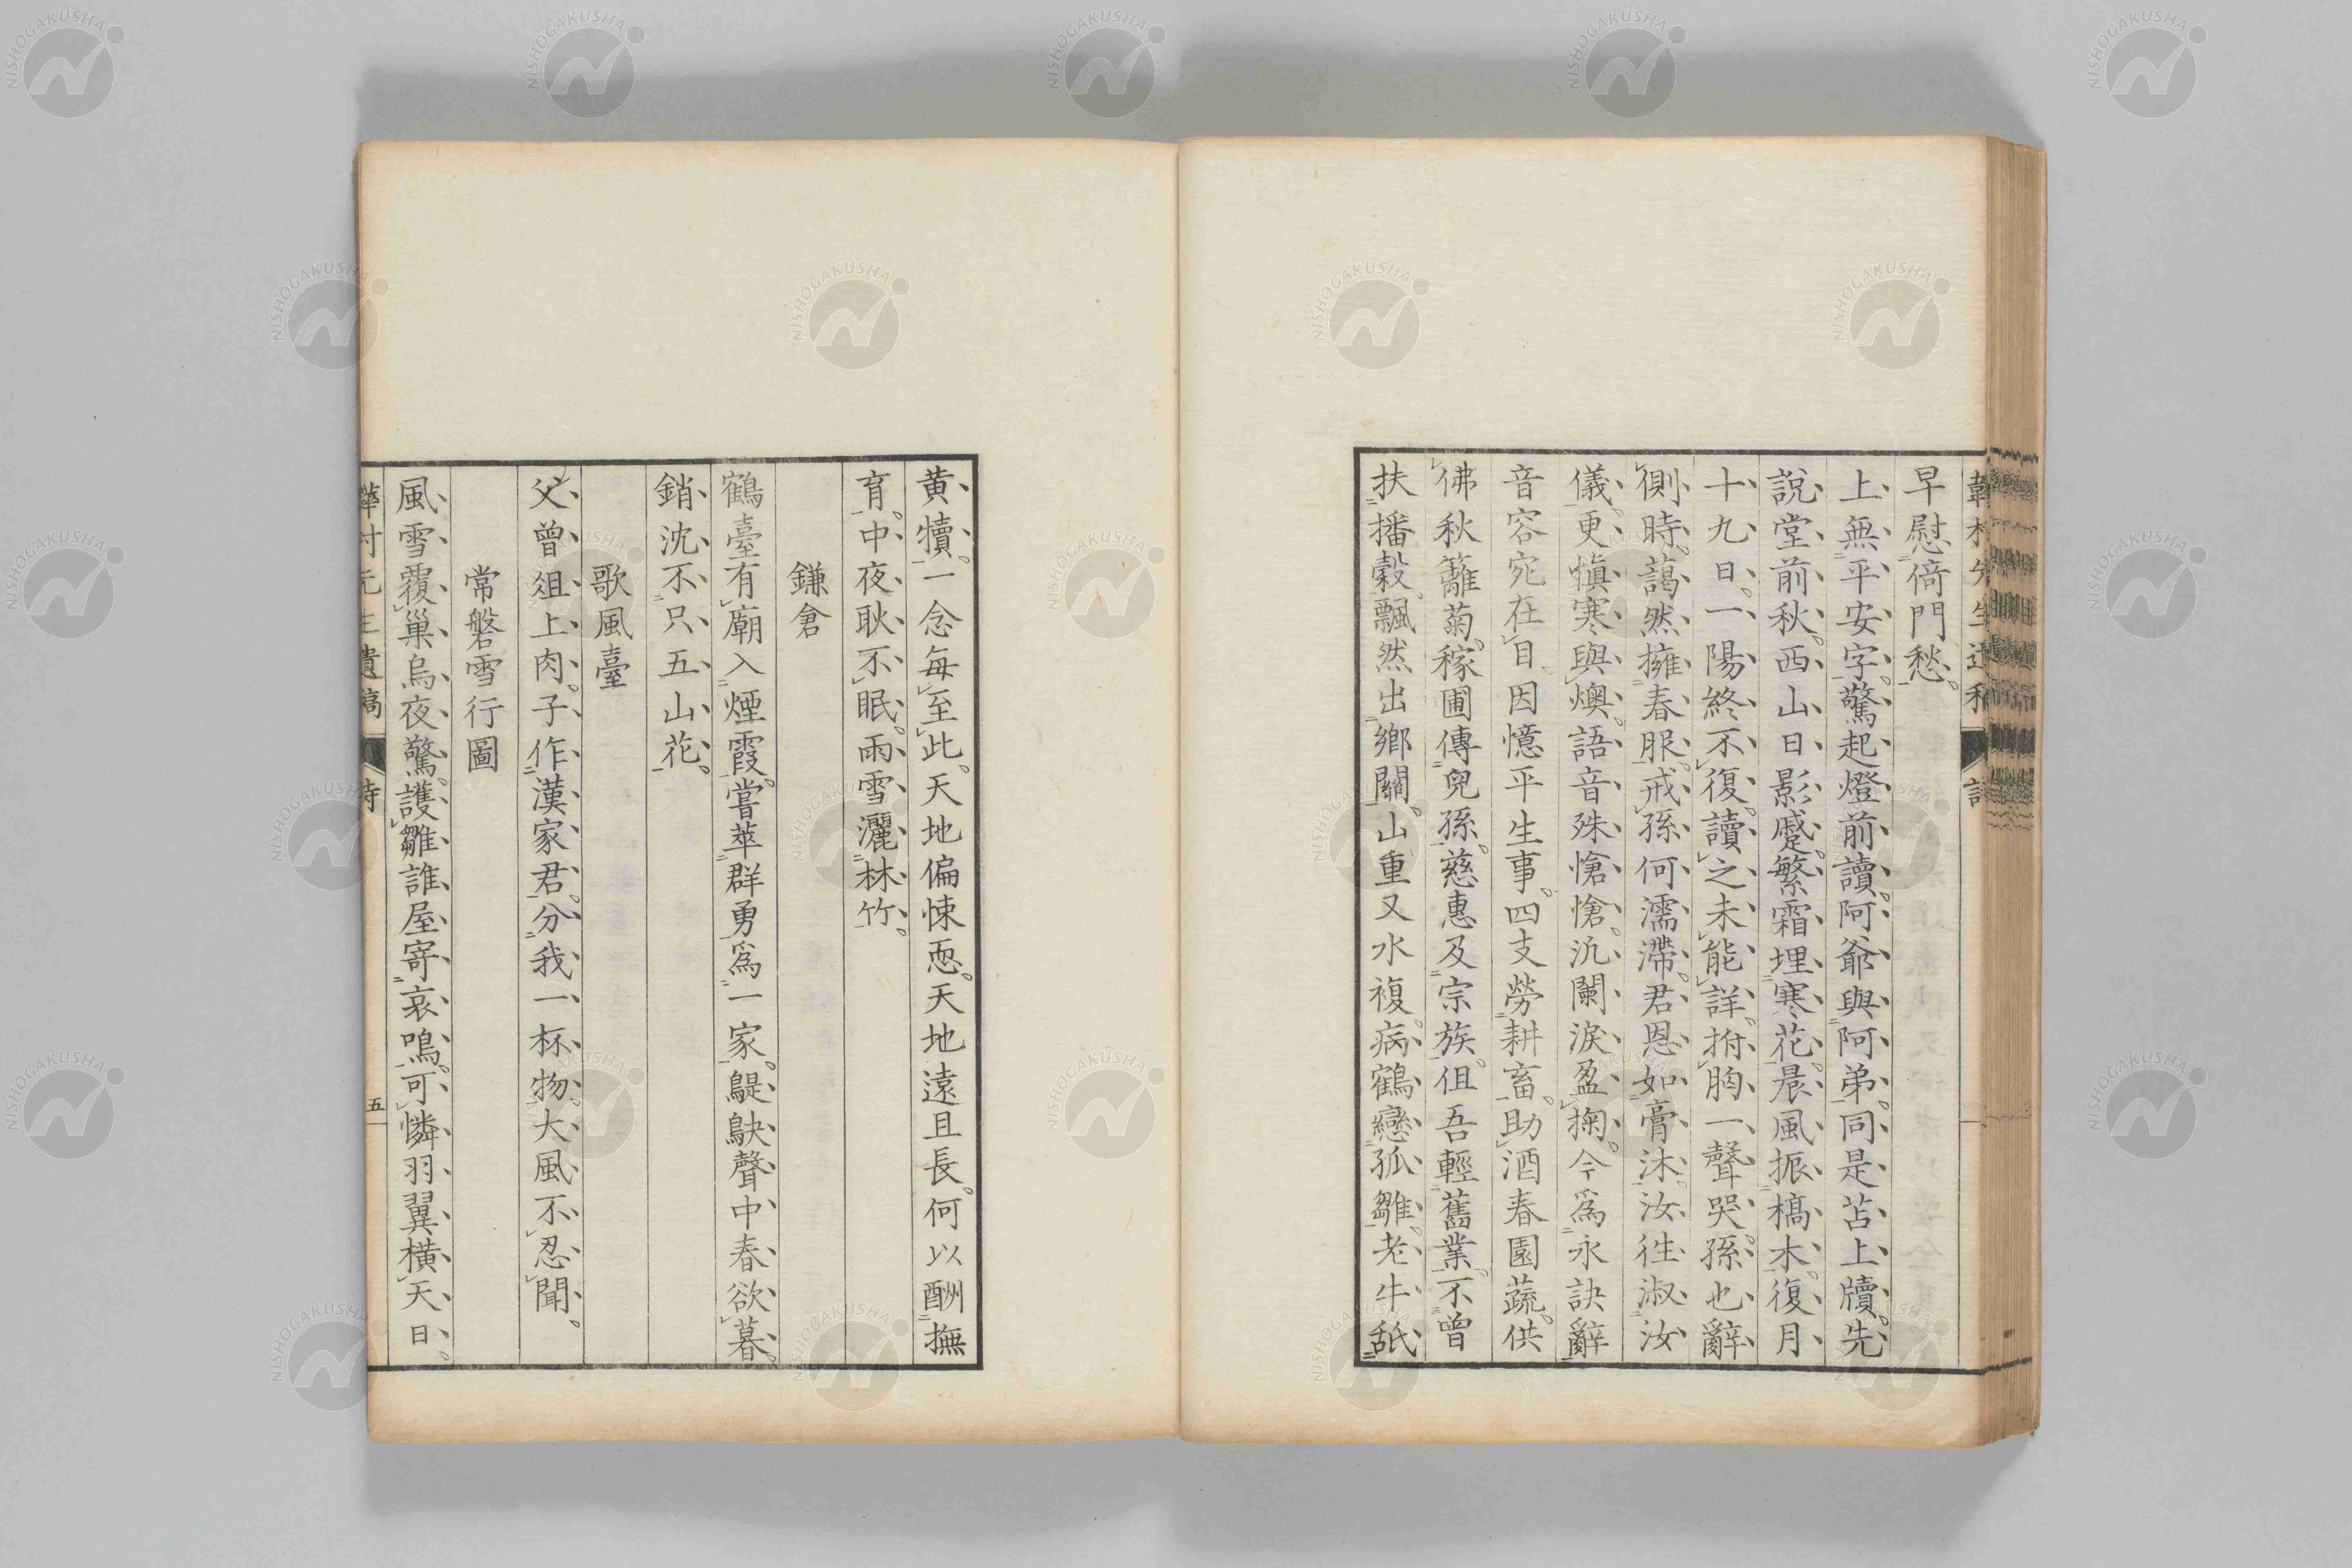 早慰倚門愁。
上無平安字。驚起燈前讀。阿爺與阿弟。同是苫上牘。先
說堂前秋。西山日影蹙。繁霜埋寒花。晨風振槁木。復月
十九日。一陽終不復。讀之未能詳。拊胸一聲哭。孫也辭
側時。藹然擁春服。戒孫何濡滯。君恩如膏沐。汝往淑汝
儀。更愼寒與燠。語音殊愴愴。汍闌淚盈掬。今爲永訣辭
音容宛在目。因憶平生事。四支勞耕畜。助酒春園蔬。供
佛秋籬菊。稼圃傳兒孫。慈惠及宗族。但吾輕舊業。不曾
扶播穀。飄然出鄉關。山重又水複。病鶴戀孤雛。老牛舐
黃犢。一念每至此。天地偏悚恧。天地遠且長。何以酬撫
育。中夜耿不眠。雨雪灑林竹。
鎌倉
鶴臺有廟入煙霞。嘗萃群勇爲一家。鶗鴂聲中春欲暮。
銷沈不只五山花。
歌風臺
父曾俎上肉。子作漢家君。分我一杯物。大風不忍聞。
常磐雪行圖
風雪覆巢烏夜驚。護雛誰屋寄哀鳴。可憐羽翼橫天日。
遺稿 五
NISHOGAKUSHA